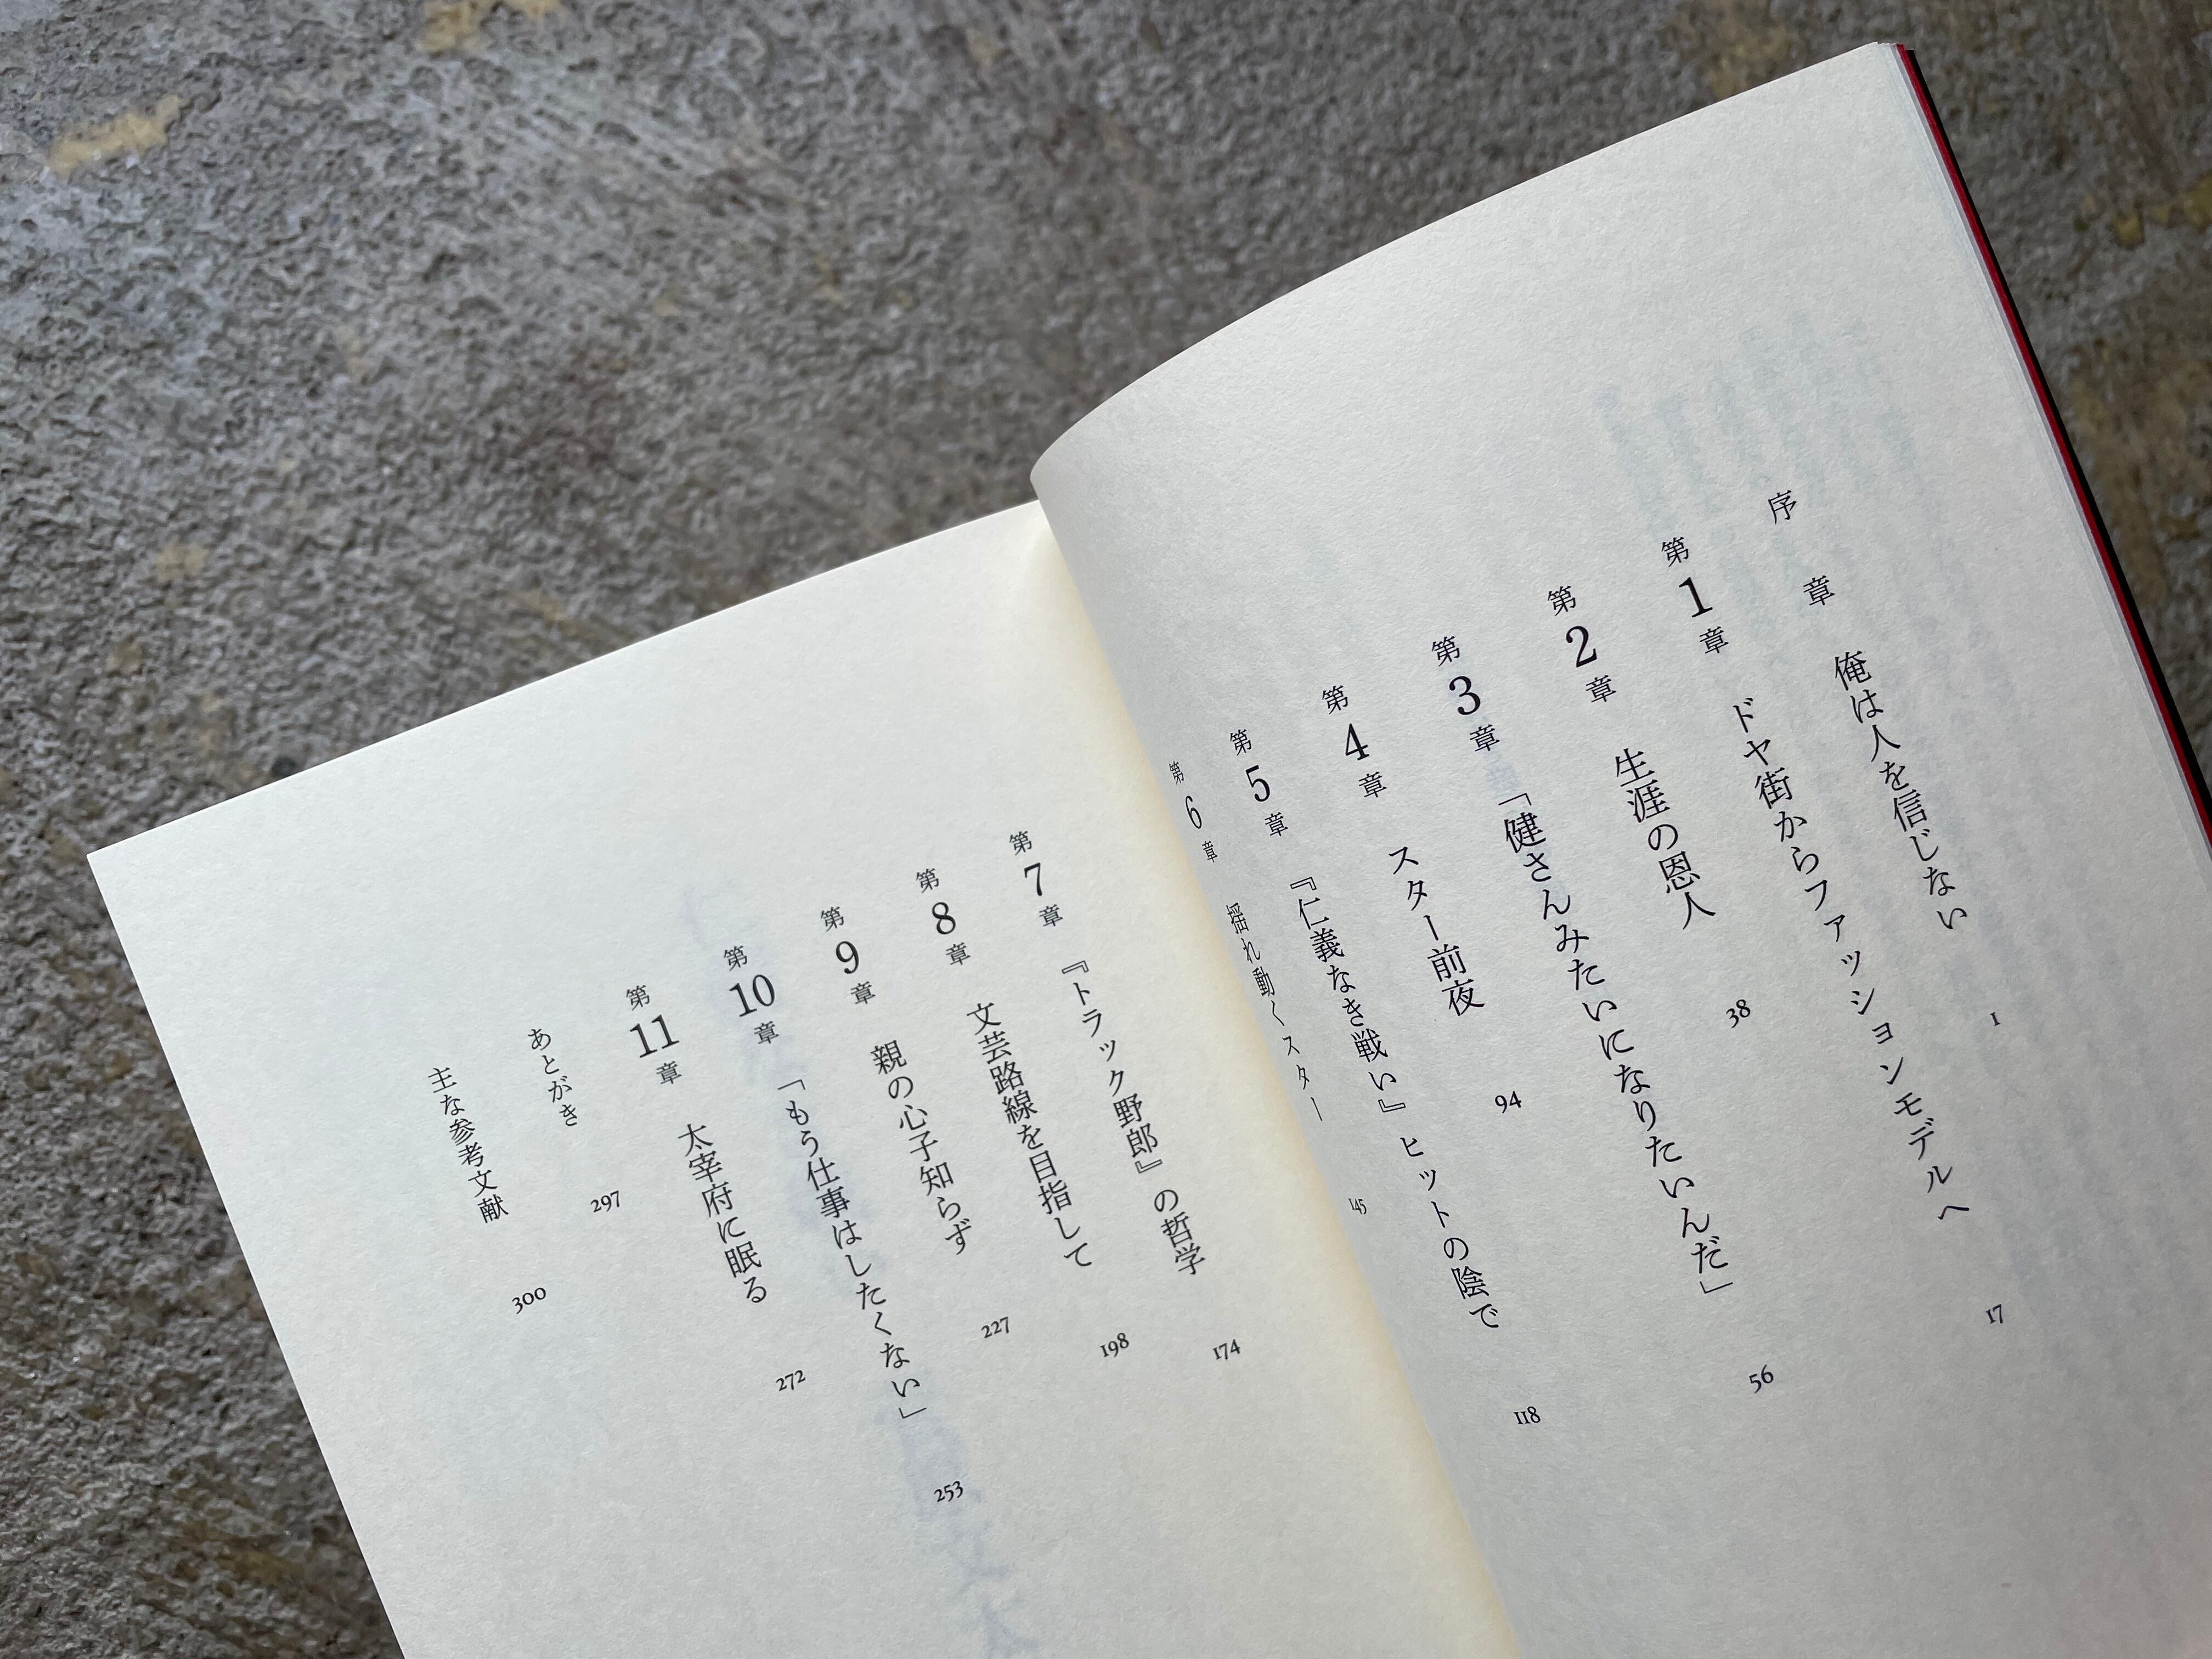 序章 俺は人を信じない 1
第1章 ドヤ街からファッションモデルへ 17
第2章 生涯の恩人 38
第3章 「健さんみたいになりたいんだ」 56
第4章 スター前夜 94
第5章 『仁義なき戦い』ヒットの陰で 118
第6章 揺れ動くスター 145
第7章 『トラック野郎』の哲学 174
第8章 文芸路線を目指して 198
第9章 親の心子知らず 227
第10章 「もう仕事はしたくない」 253
第11章 太宰府に眠る 272
あとがき 297
主な参考文献 300